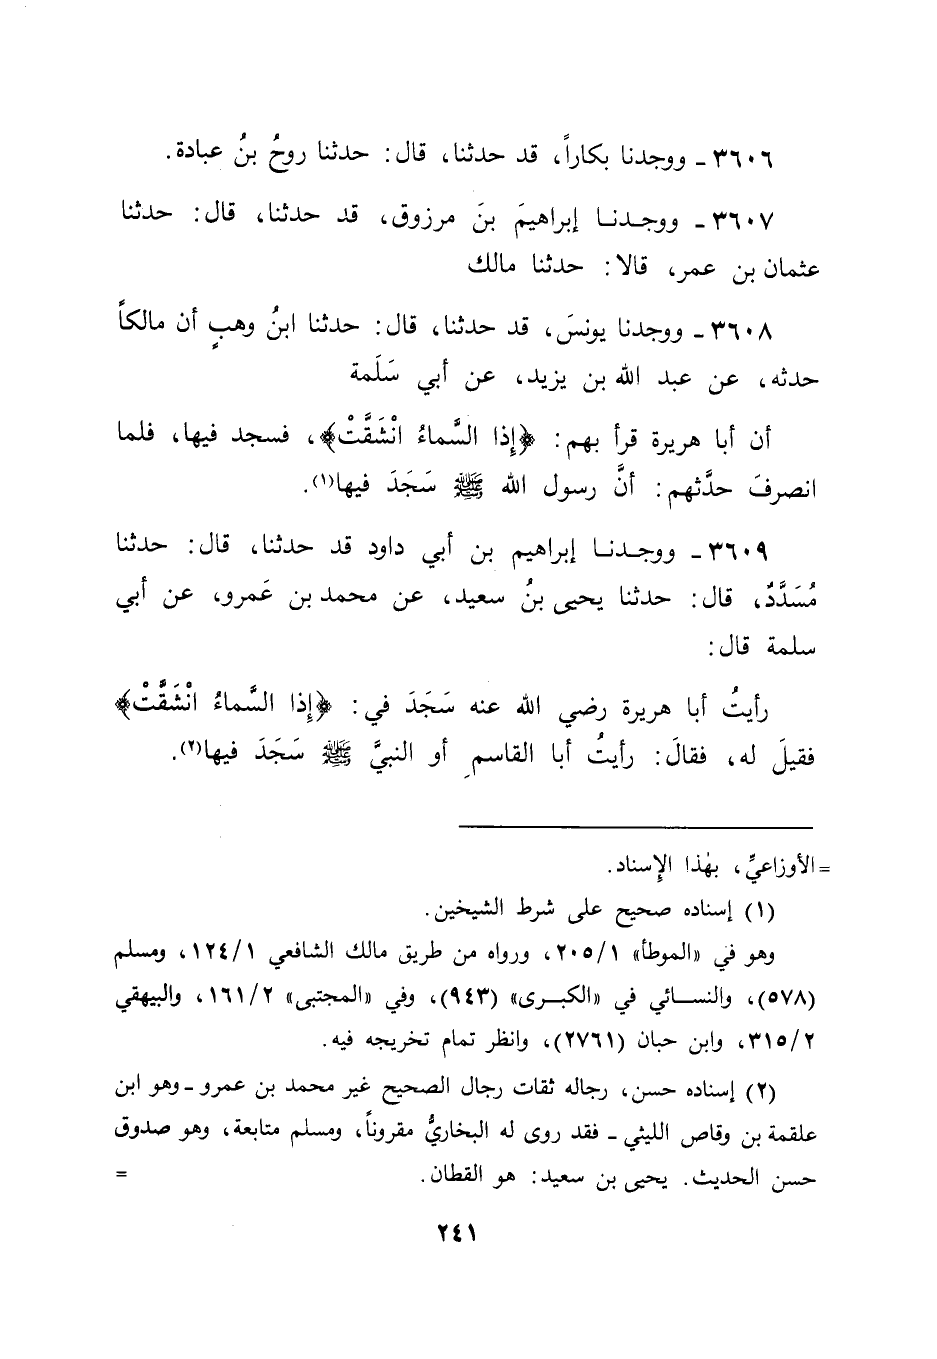 ٣٦٠٦ ـ ووجدنا بكاراً، قد حدثنا، قال: حدثنا روحُ بنُ عبادة.
٣٦٠٧ ـ ووجـدنـا إبراهيمَ بنَ مرزوق، قد حدثنا، قال: حدثنا
عثمان بن عمر، قالا: حدثنا مالك
٣٦٠٨ ـ ووجدنا يونسَ، قد حدثنا، قال: حدثنا ابنُ وهبٍ أن مالكاً
حدثه، عن عبد الله بن يزيد، عن أبي سَلَمة
أن أبا هريرة قرأ بهم: ﴿إذا السَّماءُ انْشَقَّتْ﴾، فسجد فيها، فلما
انصرفَ حدَّثهم: أنَّ رسول الله ﷺ سَجَدَ فيها(١).
٣٦٠٩ ـ ووجـدنـا إبراهيم بن أبي داود قد حدثنا، قال: حدثنا
مُسَدَّدٌ، قال: حدثنا يحيى بنُ سعيد، عن محمد بن عَمرو، عن أبي
سلمة قال:
رأيتُ أبا هريرة رضي الله عنه سَجَدَ في: ﴿إذا السَّماءُ انْشَقَّتْ﴾
فقيلَ له، فقالَ: رأيتُ أبا القاسمِ أو النبيَّ ﷺ سَجَدَ فيها(٢).
= الأوزاعيِّ، بهٰذا الإِسناد.
(١) إسناده صحيح على شرط الشيخين.
وهو في «الموطأ» ٢٠٥/١، ورواه من طريق مالك الشافعي ١٢٤/١، ومسلم
(٥٧٨)، والنسـائي في «الكبـرى» (٩٤٣)، وفي «المجتبى» ١٦١/٢، والبيهقي
٣١٥/٢، وابن حبان (٢٧٦١)، وانظر تمام تخريجه فيه.
(٢) إسناده حسن، رجاله ثقات رجال الصحيح غير محمد بن عمرو ـ وهو ابن
علقمة بن وقاص الليثي ـ فقد روى له البخاريُّ مقروناً، ومسلم متابعة، وهو صدوق
حسن الحديث. يحيى بن سعيد: هو القطان. =
٢٤١